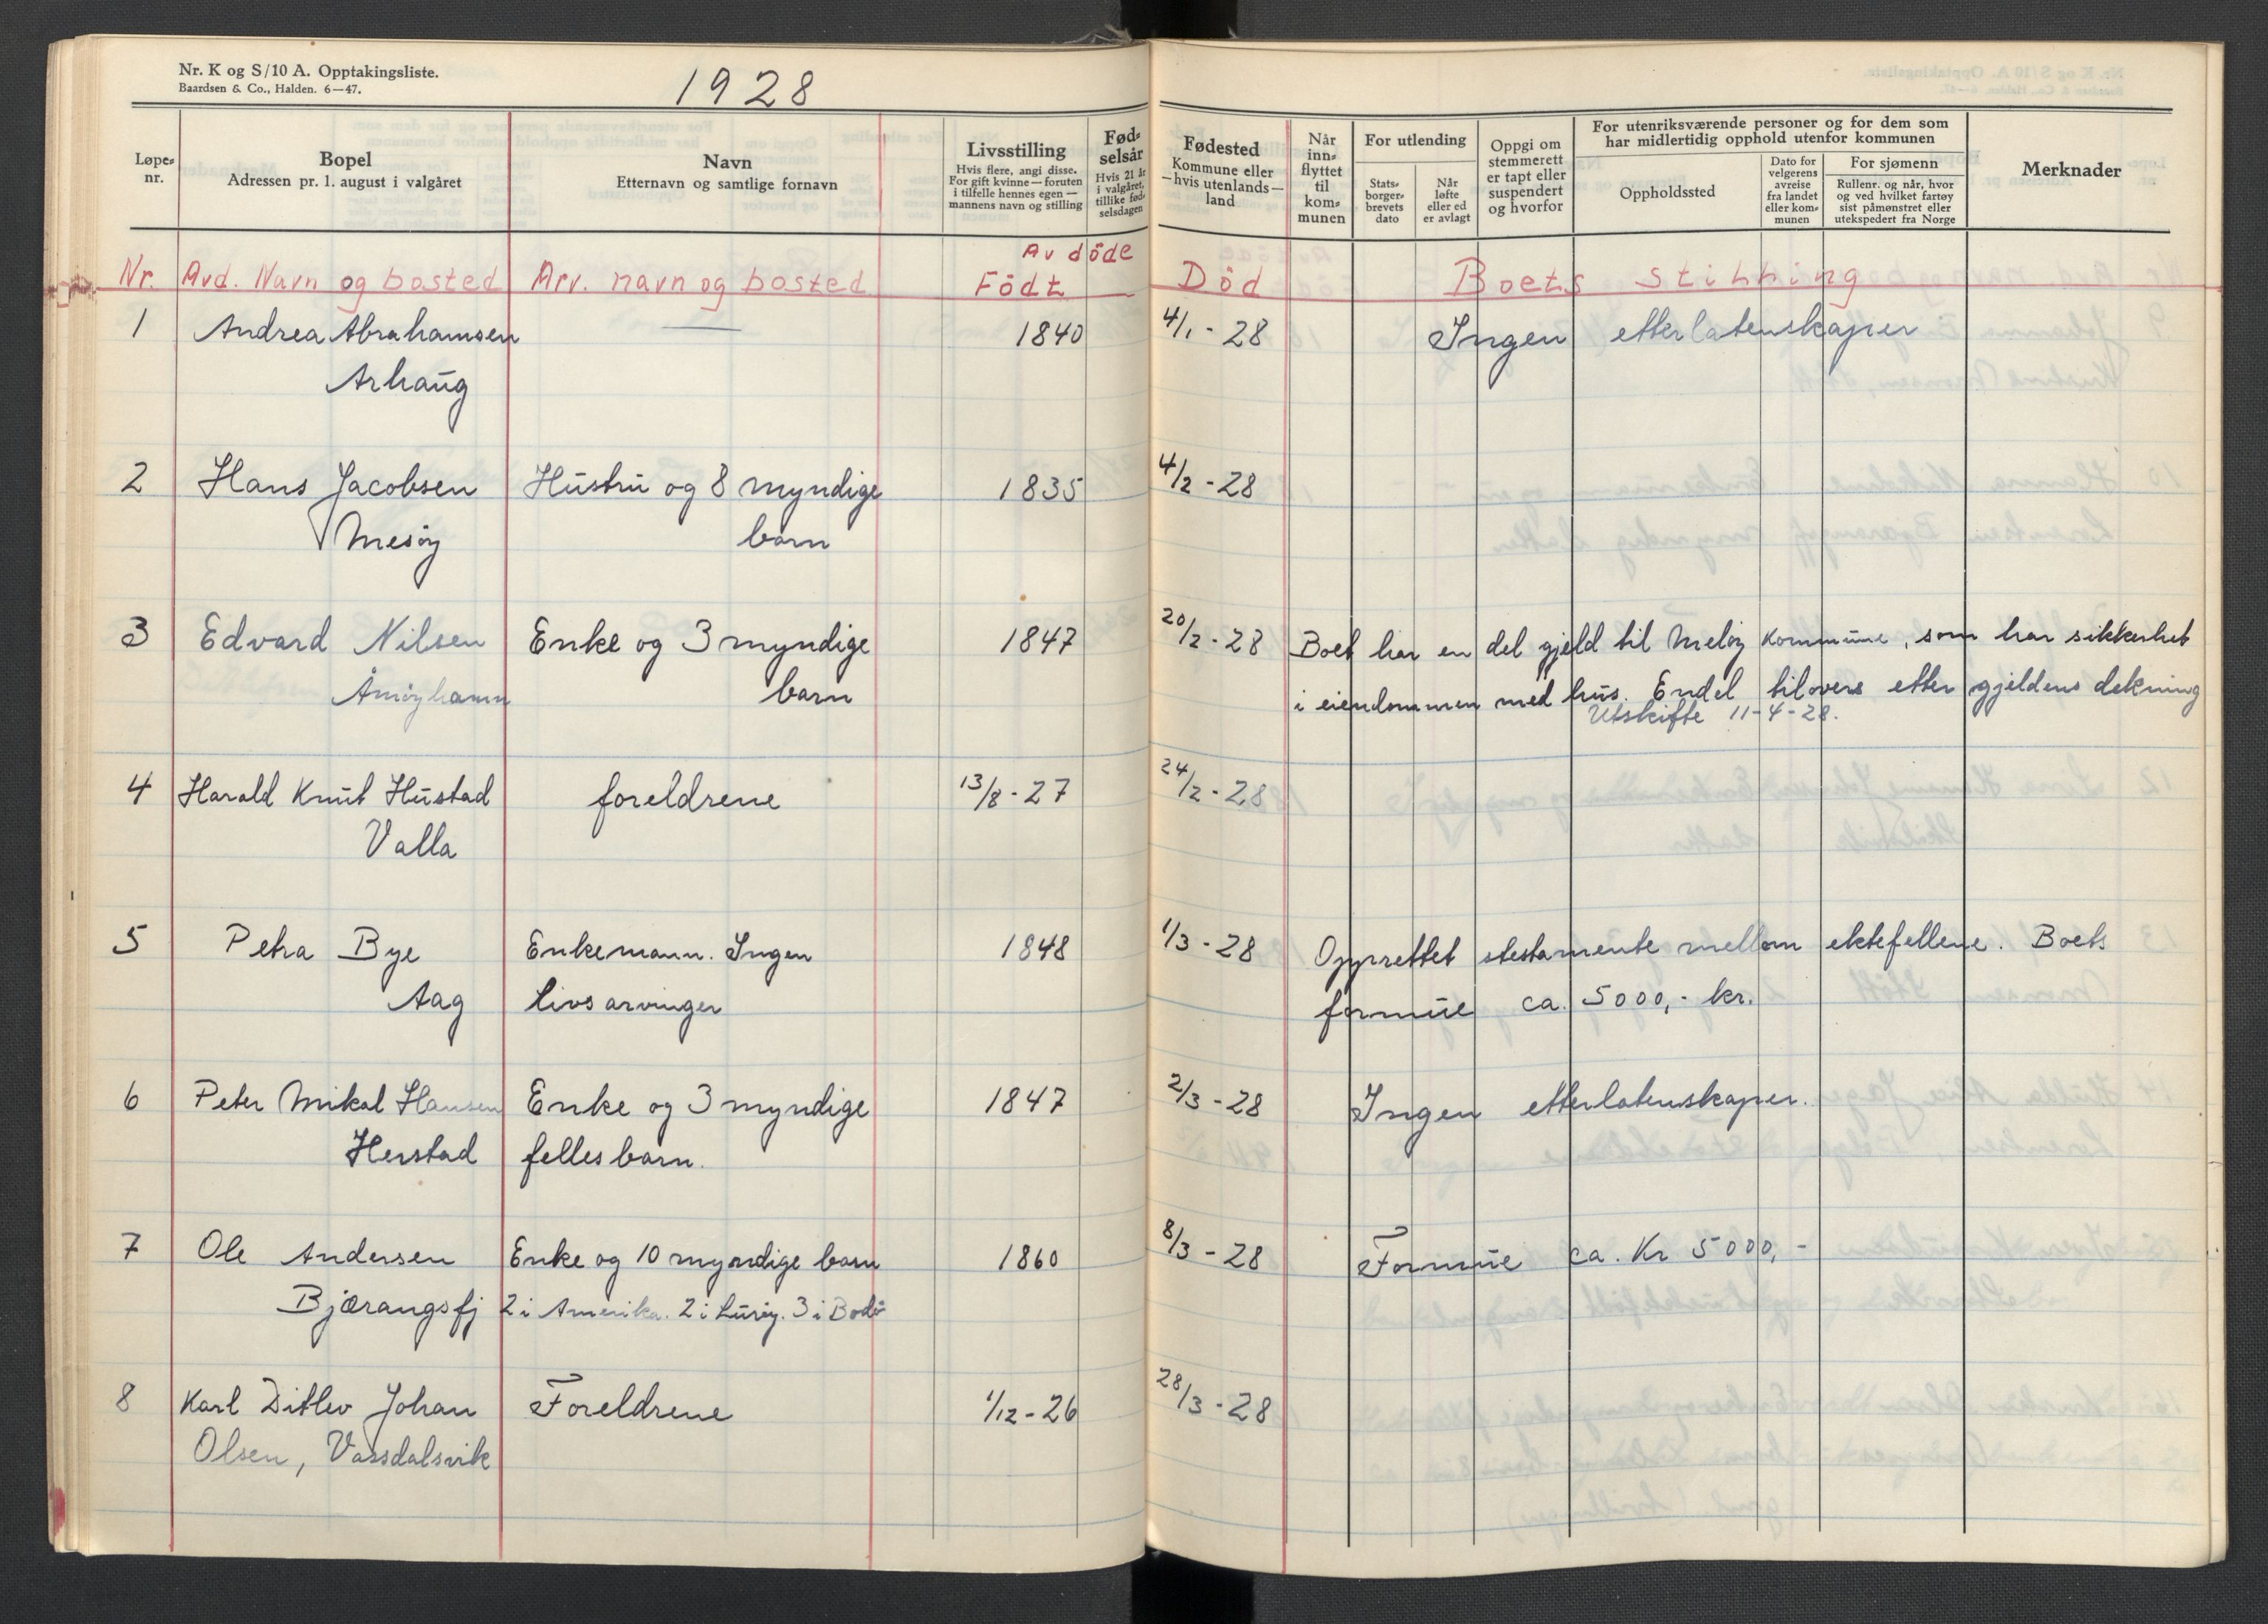 Nr. K og S/10 A. Opptakingsliste.
Baardsen & Co., Halden. 6—47.
1928
Løpe-
nr.
Bopel
Adressen pr. 1. august i valgåret
Navn
Etternavn og samtlige fornavn
Livsstilling
Hvis flere, angi disse.
For gift kvinne — foruten
i tilfelle hennes egen —
mannens navn og stilling
Fød-
selsår
Hvis 21 år
i valgåret,
tillike fød-
selsdagen
Fødested
Kommune eller
— hvis utenlands —
land
Når
inn-
flyttet
til
kom-
munen
For utlending
Stats-
borger-
brevets
dato
Når
løfte
eller ed
er avlagt
Oppgi om
stemmerett
er tapt eller
suspendert
og hvorfor
For utenriksværende personer og for dem som
har midlertidig opphold utenfor kommunen
Oppholdssted
Dato for
velgerens
avreise
fra landet
eller kom-
munen
For sjømenn
Rullenr. og når, hvor
og ved hvilket fartøy
sist påmønstret eller
utekspedert fra Norge
Merknader
Av döde
Nr. Avd. Navn og bosted Arv. navn og bosted Födt Död Boets stilling
1 Andrea Abrahamsen — 1840 4/1 - 28 Ingen etterlatenskaper
Arhaug
2 Hans Jacobsen Hustru og 8 myndige 1835 4/2 - 28
Mesøy barn
3 Edvard Nilsen Enke og 3 myndige 1847 20/2 - 28 Boet har en del gjeld til Meløy kommune, som har sikkerhet
Åmøyhamn barn i eiendommen med hus. Endel tilovers etter gjeldens dekning
Utskifte 11-4-28.
4 Harald Knut Hustad foreldrene 13/8 - 27 24/2 - 28
Valla
5 Petra Bye Enkemann. Ingen 1848 1/3 - 28 Opprettet testamente mellom ektefellene. Boets
Aag livsarvinger formue ca. 5000,- kr.
6 Peter Mikal Hansen Enke og 3 myndige 1847 2/3 - 28 Ingen etterlatenskaper.
Herstad fellesbarn.
7 Ole Andersen Enke og 10 myndige barn 1860 8/3 - 28 Formue ca. Kr 5000,-
Bjærangsfj 2 i Amerika. 2 i Lurøy. 3 i Bodø
8 Karl Ditlev Johan Foreldrene 1/12 - 26 28/3 - 28
Olsen, Vassdalsvik